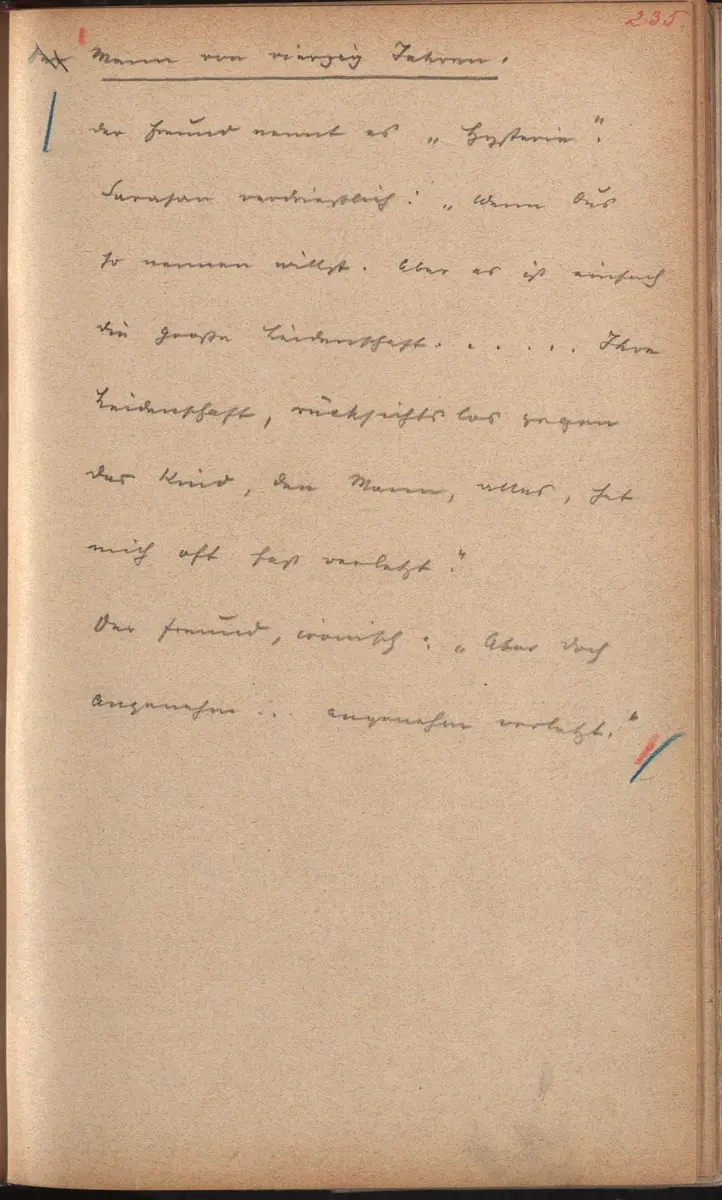 235.
der Mann von vierzig Jahren.
der Freund nennt es „Hysterie".
Sarasan verdrießlich: „Wenn Dus
so nennen willst. Aber es ist einfach
die große Leidenschaft. . . . . . Ihre
Leidenschaft, rücksichtslos gegen
das Kind, den Mann, alles, hat
mich oft fast verletzt."
Der Freund, ironisch: „Aber doch
angenehm .. angenehm verletzt."